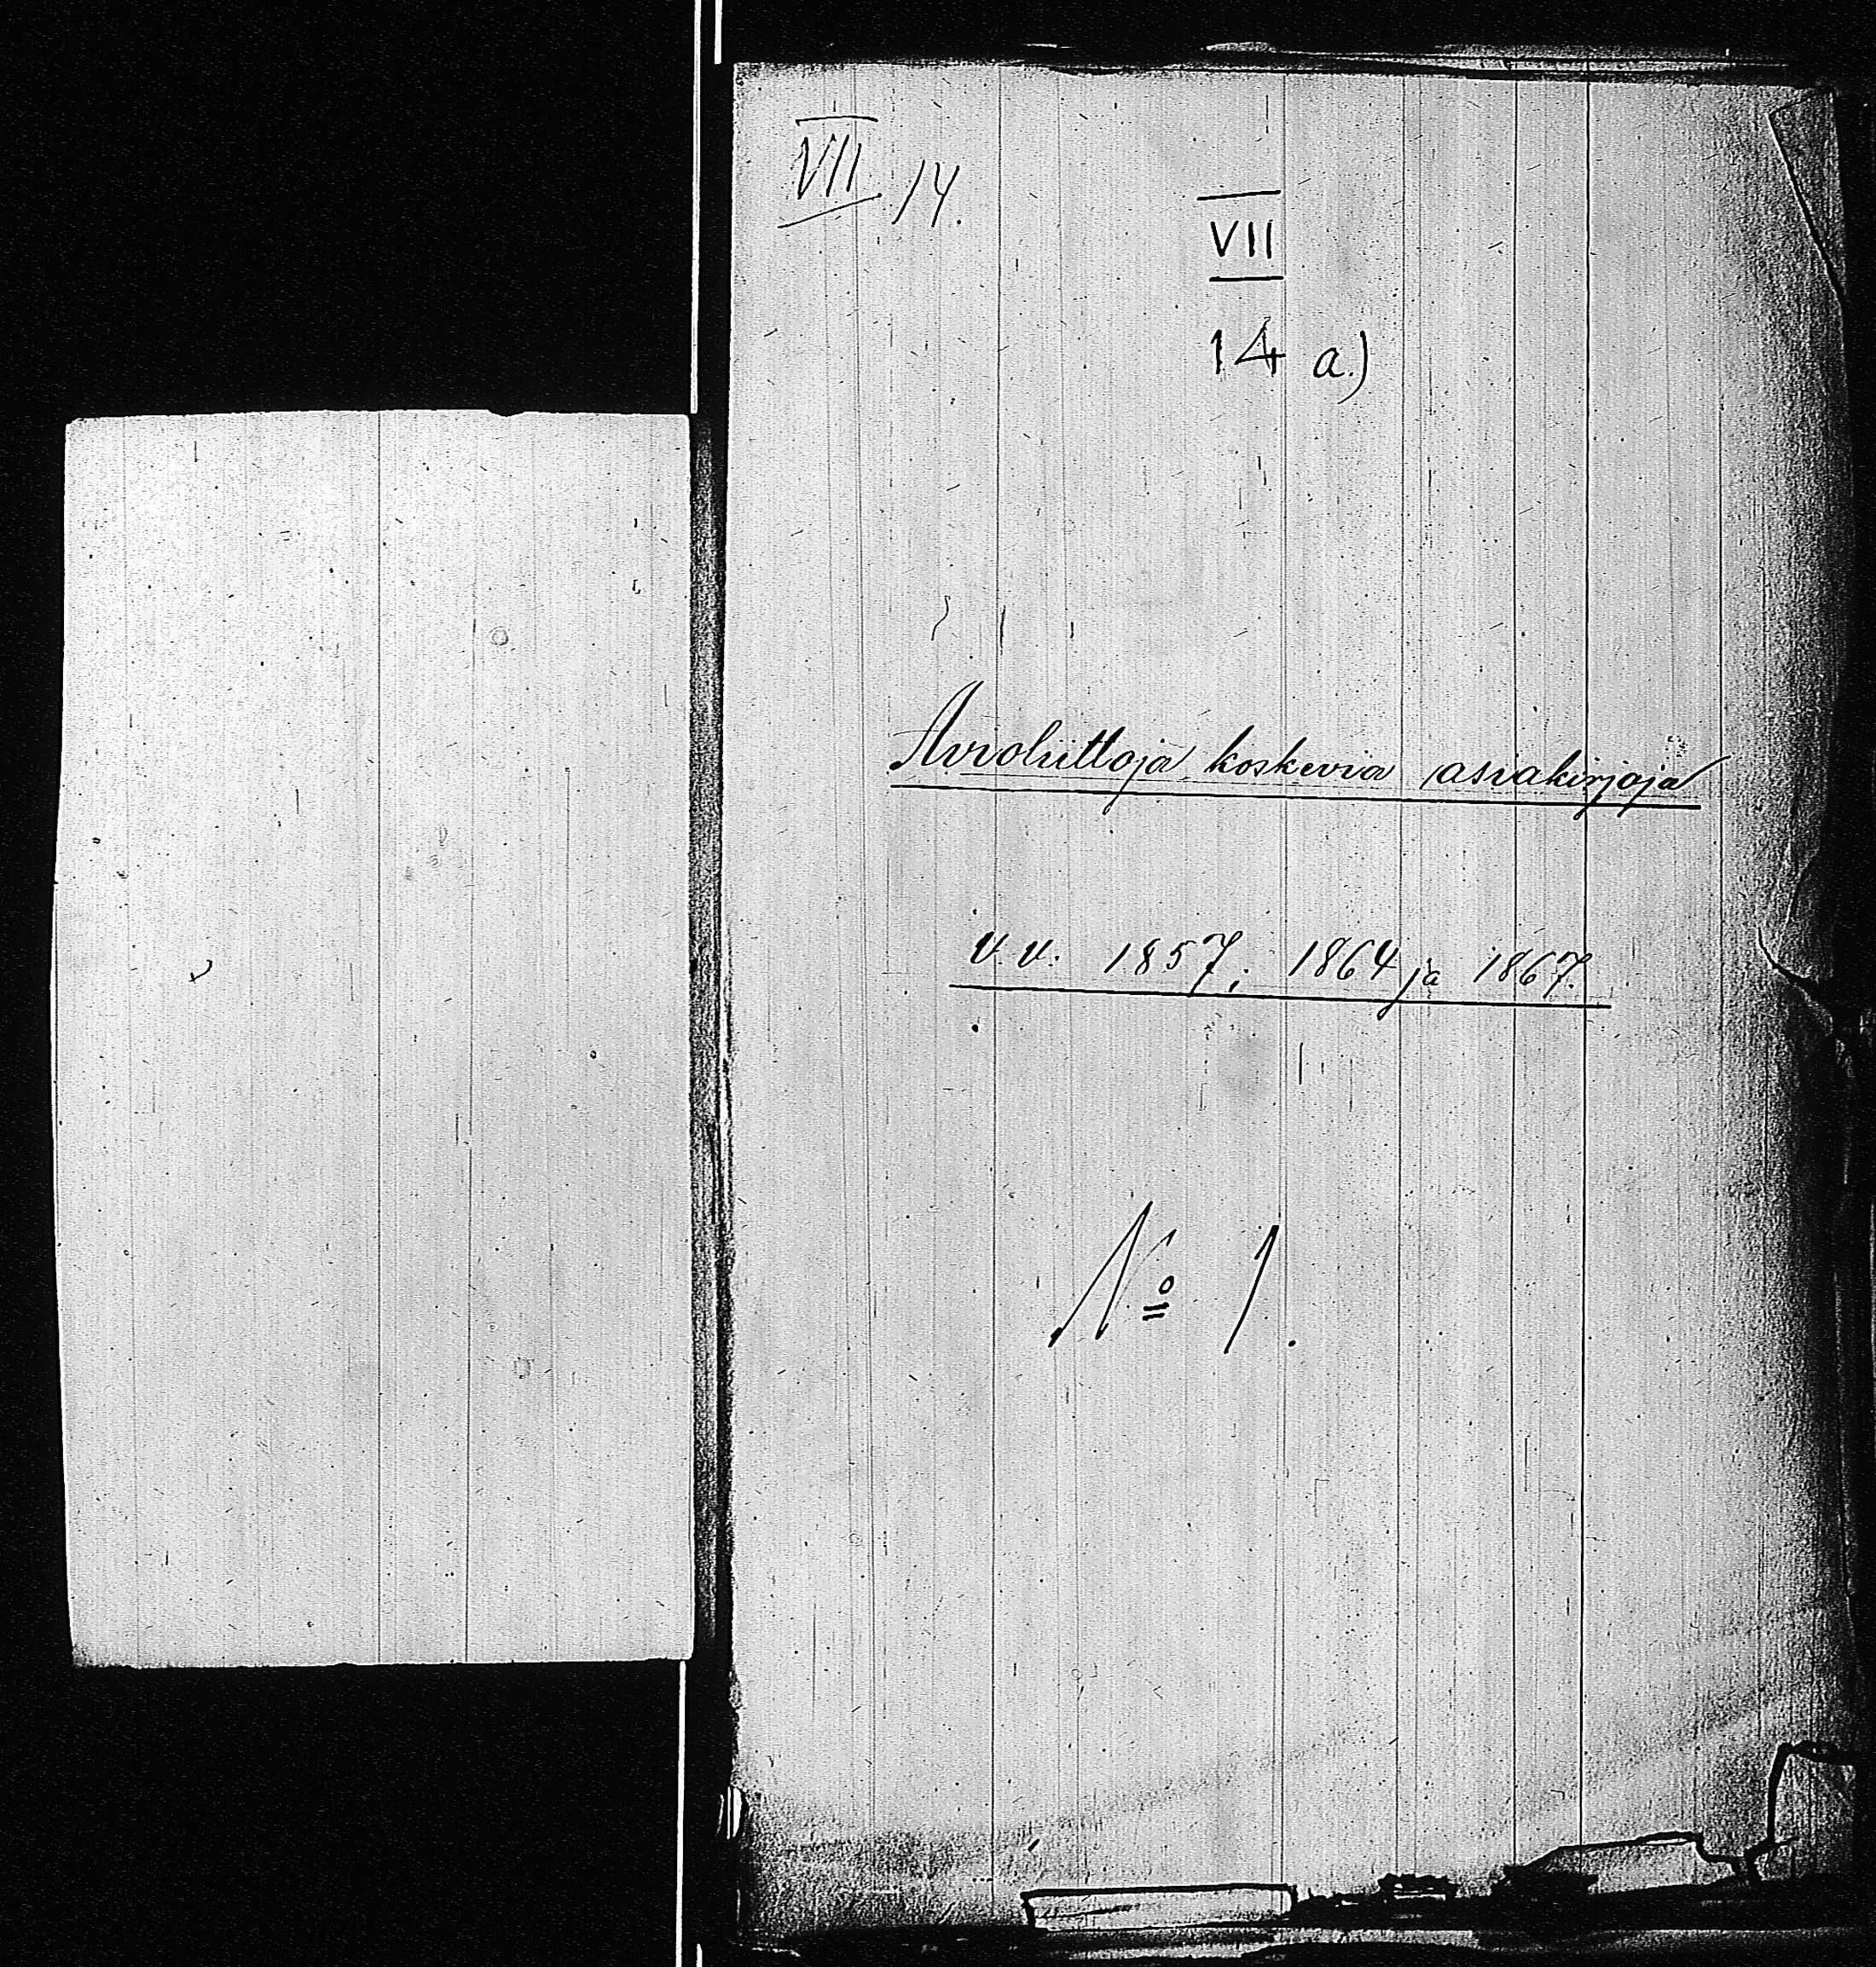 VII 14.
VII
14 a.)
Avioliittoja koskevia asiakirjoja
v.v. 1857, 1864 ja 1867.
Nº 1.